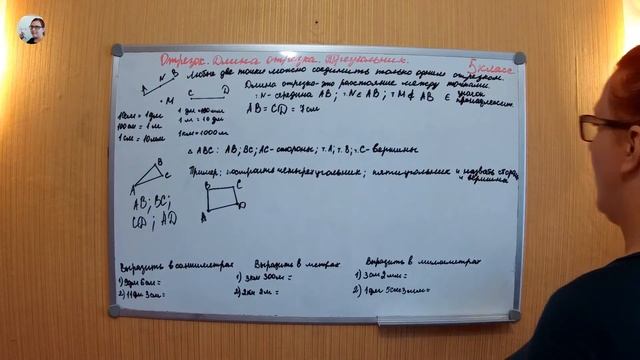 Отрезок. Длина отрезка. Треугольник.
5 класс
Любые две точки можно соединить только одним отрезком.
Длина отрезка - это расстояние между точками.
A N B
• M
C D
т. N - середина AB; т. N ∈ AB; т. M ∉ AB
∈ знак принадлежит
AB = CD = 7 см
10см = 1дм
100см = 1м
1см = 10мм
1 дм = 100мм
1 м = 10 дм
1км = 1000м
△ ABC: AB; BC; AC - стороны; т. A; т. B; т. C - вершины
A B C
Пример: построить четырехугольник; пятиугольник и назвать стороны и вершины
AB; BC;
CD; AD
B C
A D
Выразить в сантиметрах
1) 9дм 6см =
2) 11дм 3см =
Выразить в метрах
1) 3км 300м =
2) 2км 2м =
Выразить в миллиметрах
1) 3см 2мм =
2) 1дм 5см 3мм =